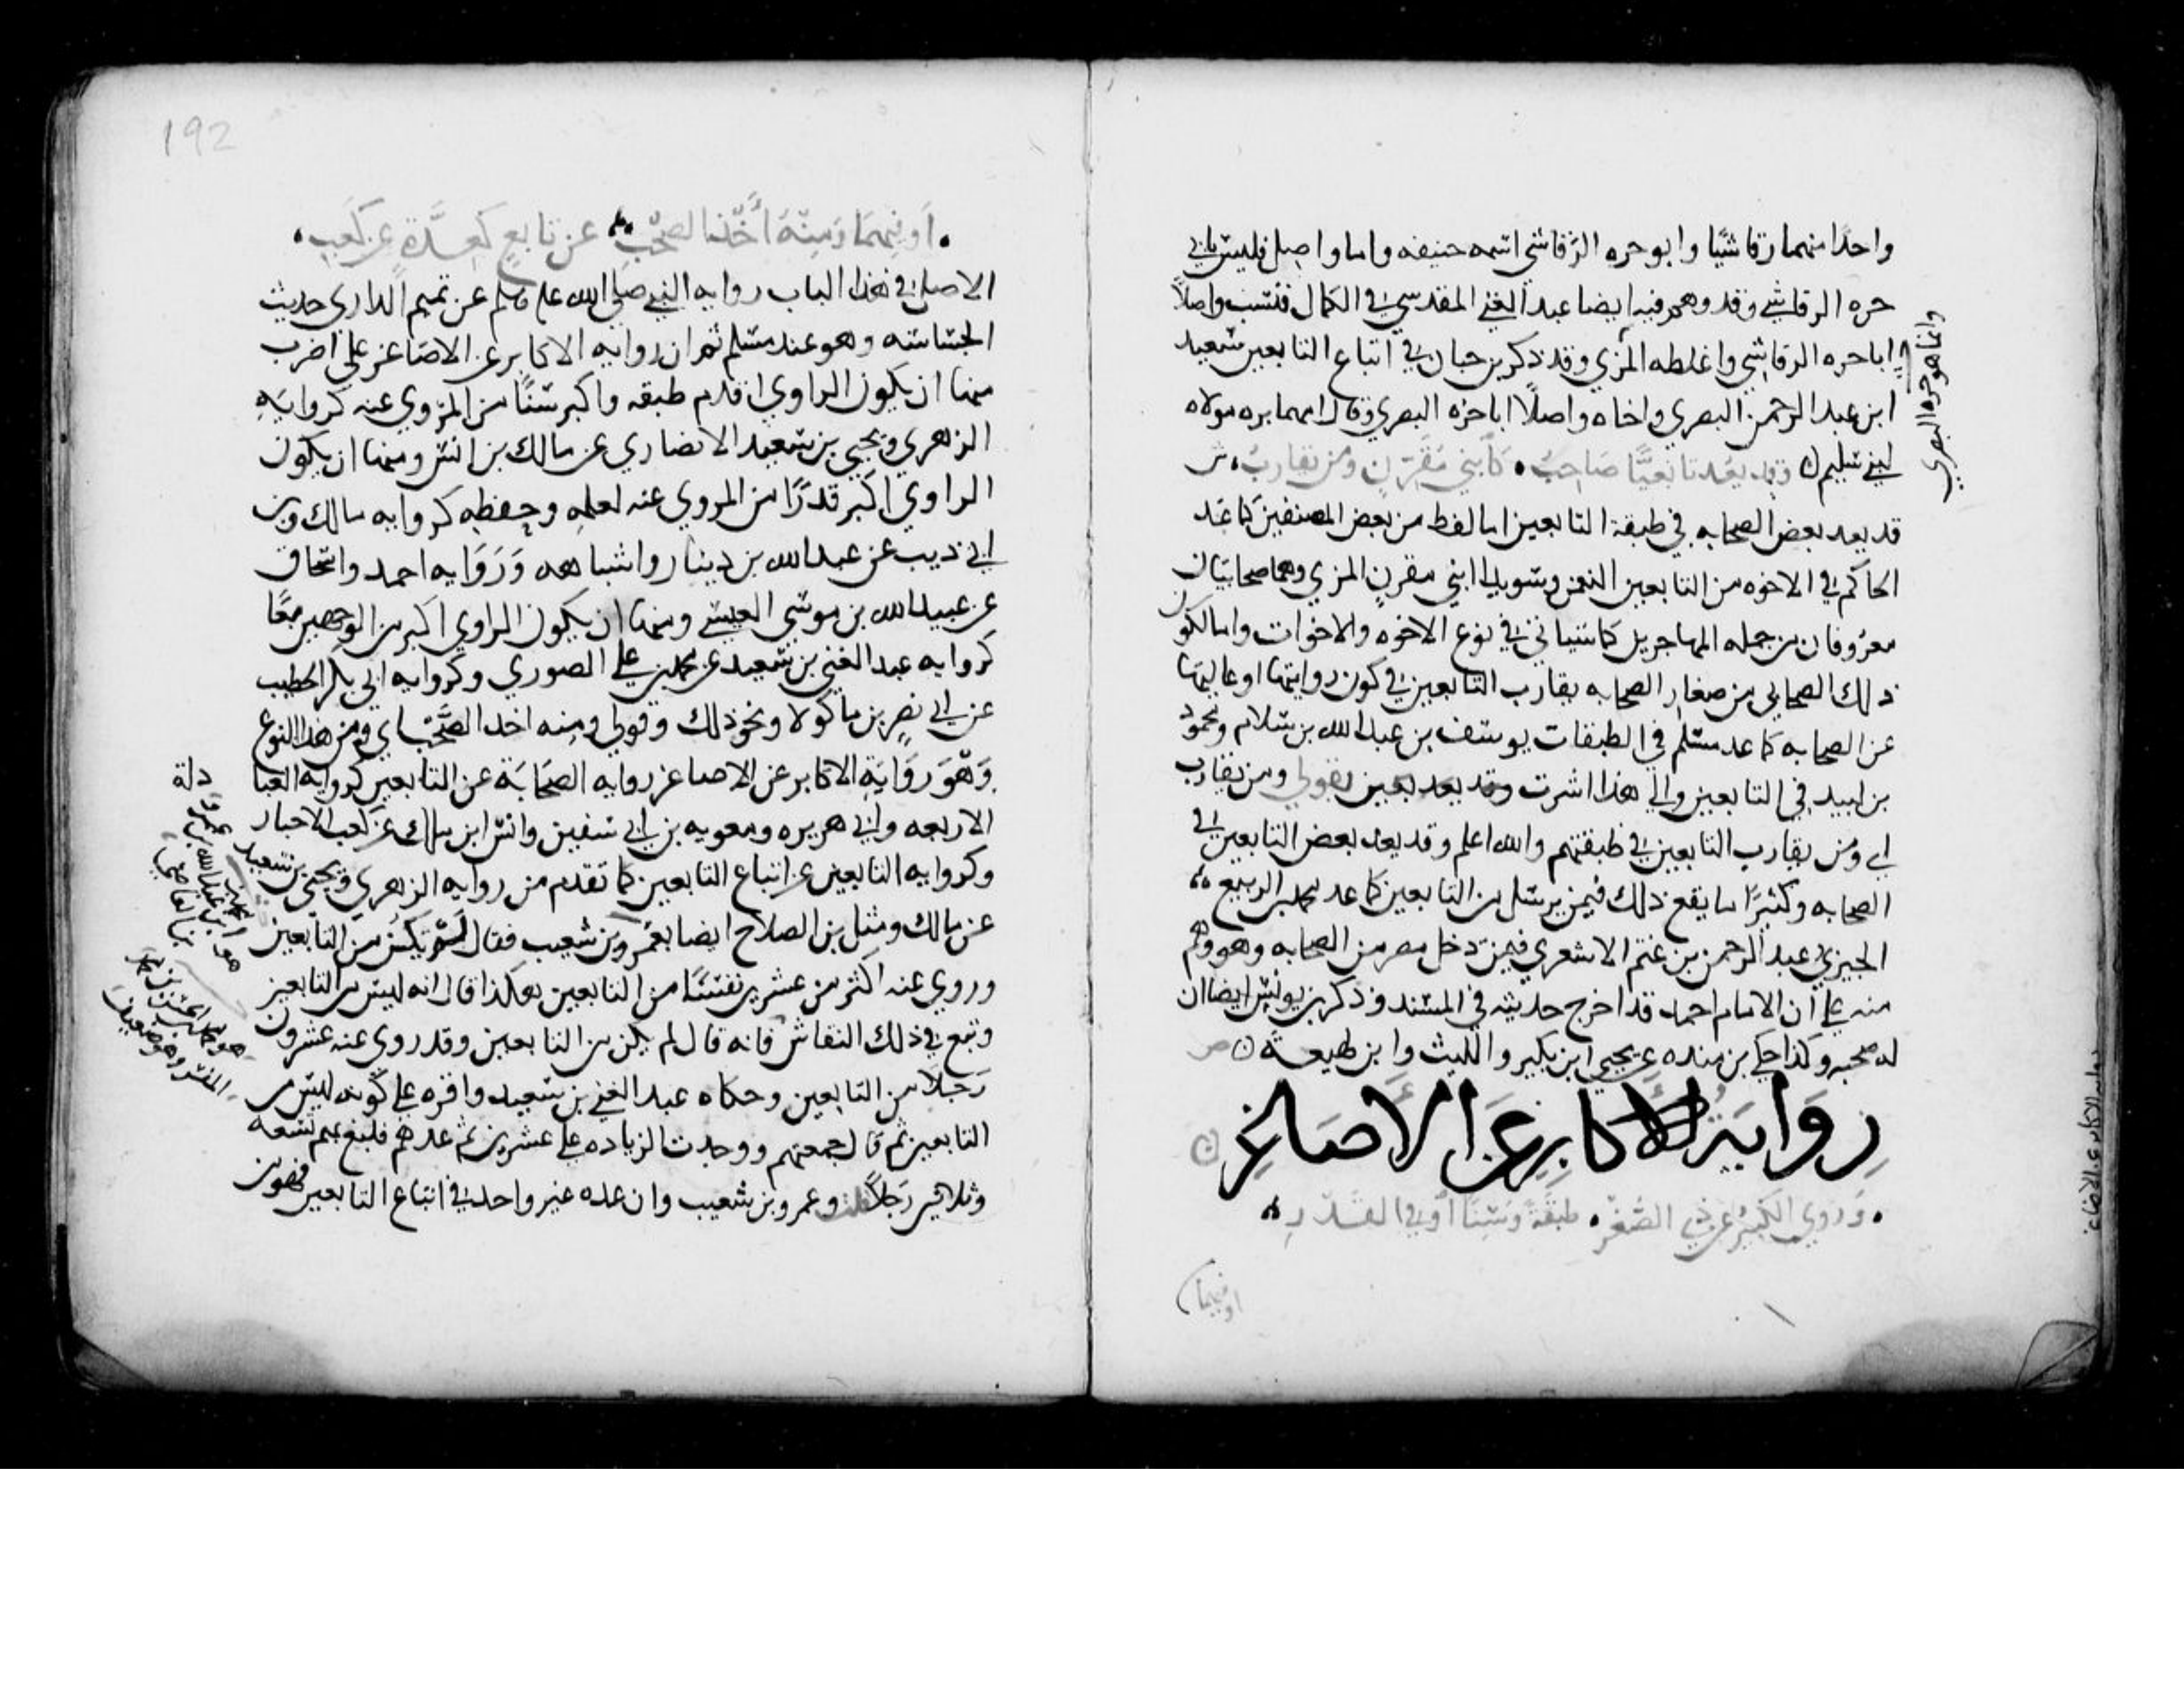 واحدا منهما رقاشيا وابو حره الرقاشي اسمه حنيفه واما واصل فليس بابي
حره الرقاشي وقد وهم فيه ايضا عبد الغني المقدسي في الكمال فنسب واصلا
ابا حره الرقاشي واغلطه المزي وقد ذكر بن حبان في اتباع التابعين سعيد
ابن عبد الرحمن البصري واخاه واصلا ابا حره البصري وقال امهما بره مولاه
لبني سليم ن وقد يعد تابعيا صاحب • كابني مقرن ومن يقارب • ش
قد يعد بعض الصحابه في طبقة التابعين اما لغلط من بعض المصنفين كما عد
الحاكم في الاخوه من التابعين النعمن وسويدا ابني مقرن المزني وهما صحابيان
معروفان من جمله المهاجرين كما سياتي في نوع الاخوه والاخوات واما لكون
ذلك الصحابي من صغار الصحابه يقارب التابعين في كون روايتها او غالبها
عن الصحابه كما عد مسلم في الطبقات يوسف بن عبد الله بن سلام ومحمود
بن لبيد في التابعين والي هذا اشرت بقولي ومن يقارب
اي ومن يقارب التابعين في طبقتهم والله اعلم وقد يعد بعض التابعين في
الصحابه وكثيرا ما يقع ذلك فيمن يرسل من التابعين كما عد محمد بن الربيع
الجيزي عبد الرحمن بن غنم الاشعري فيمن دخل مصر من الصحابه وهو وهم
منه علي ان الامام احمد قد اخرج حديثه في المسند وذكر بن يونس ايضا ان
له صحبه وكذا حكي بن منده عن يحيي ابن بكير والليث وابن لهيعة ن
رِوَايَةُ الأكابرِ عَنِ الأصَاغِرِ ن
• وروي الكبير عن ذي الصغر • طبقة وسنا او في القدر
او فيهما
وانما هو حره البصري
رواية الاكابر عن الاصاغر
192
• او فيهما ومنه اخذ الصحب عن تابع كعدة عن كعب •
الاصل في هذا الباب روايه النبي صلي الله عليه وسلم عن تميم الداري حديث
الجساسه وهو عند مسلم ثم ان روايه الاكابر عن الاصاغر علي اضرب
منها ان يكون الراوي اقدم طبقه واكبر سنا من المروي عنه كروايه
الزهري ويحيي بن سعيد الانصاري عن مالك بن انس ومنها ان يكون
الراوي اكبر قدرا من المروي عنه لعلمه وحفظه كروايه مالك وبن
ابي ذيب عن عبد الله بن دينار واشباهه وروايه احمد واسحاق
عن عبيد الله بن موسي العبسي ومنها ان يكون الراوي اكبر من الوجهين معا
كروايه عبد الغني بن سعيد عن محمد بن علي الصوري وكروايه ابي بكر الخطيب
عن ابي نصر بن ماكولا ونحو ذلك وقولي ومنه اخذ الصحب اي ومن هذا النوع
وهو رواية الاكابر عن الاصاغر روايه الصحابة عن التابعين كروايه العبا
دلة
الاربعه وابي هريره ومعويه بن ابي سفين وانس ابن مالك عن كعب الاحبار
وكروايه التابعين عن اتباع التابعين كما تقدم من روايه الزهري ويحيي بن سعيد
عن مالك ومثل بن الصلاح ايضا بعمرو بن شعيب فقال لم يكن من التابعين
وروي عنه اكثر من عشرين نفسا من التابعين هكذا قال انه ليس من التابعين
وتبع في ذلك النقاش فانه قال لم يكن من التابعين وقد روي عنه عشرون
رجلا من التابعين وحكاه عبد الغني بن سعيد واقره علي كونه ليس من
التابعين ثم قال جمعتهم ووجدت الزياده علي عشرين ثم عدهم فبلغ بهم تسعه
وثلاثين رجلا قلت وعمرو بن شعيب وان عده غير واحد في اتباع التابعين فهو من
هو ابن محمد بن عبد الله بن عمرو بن العاصي
هو محمد بن الحسن بن محمد
المفسر وهو ضعيف